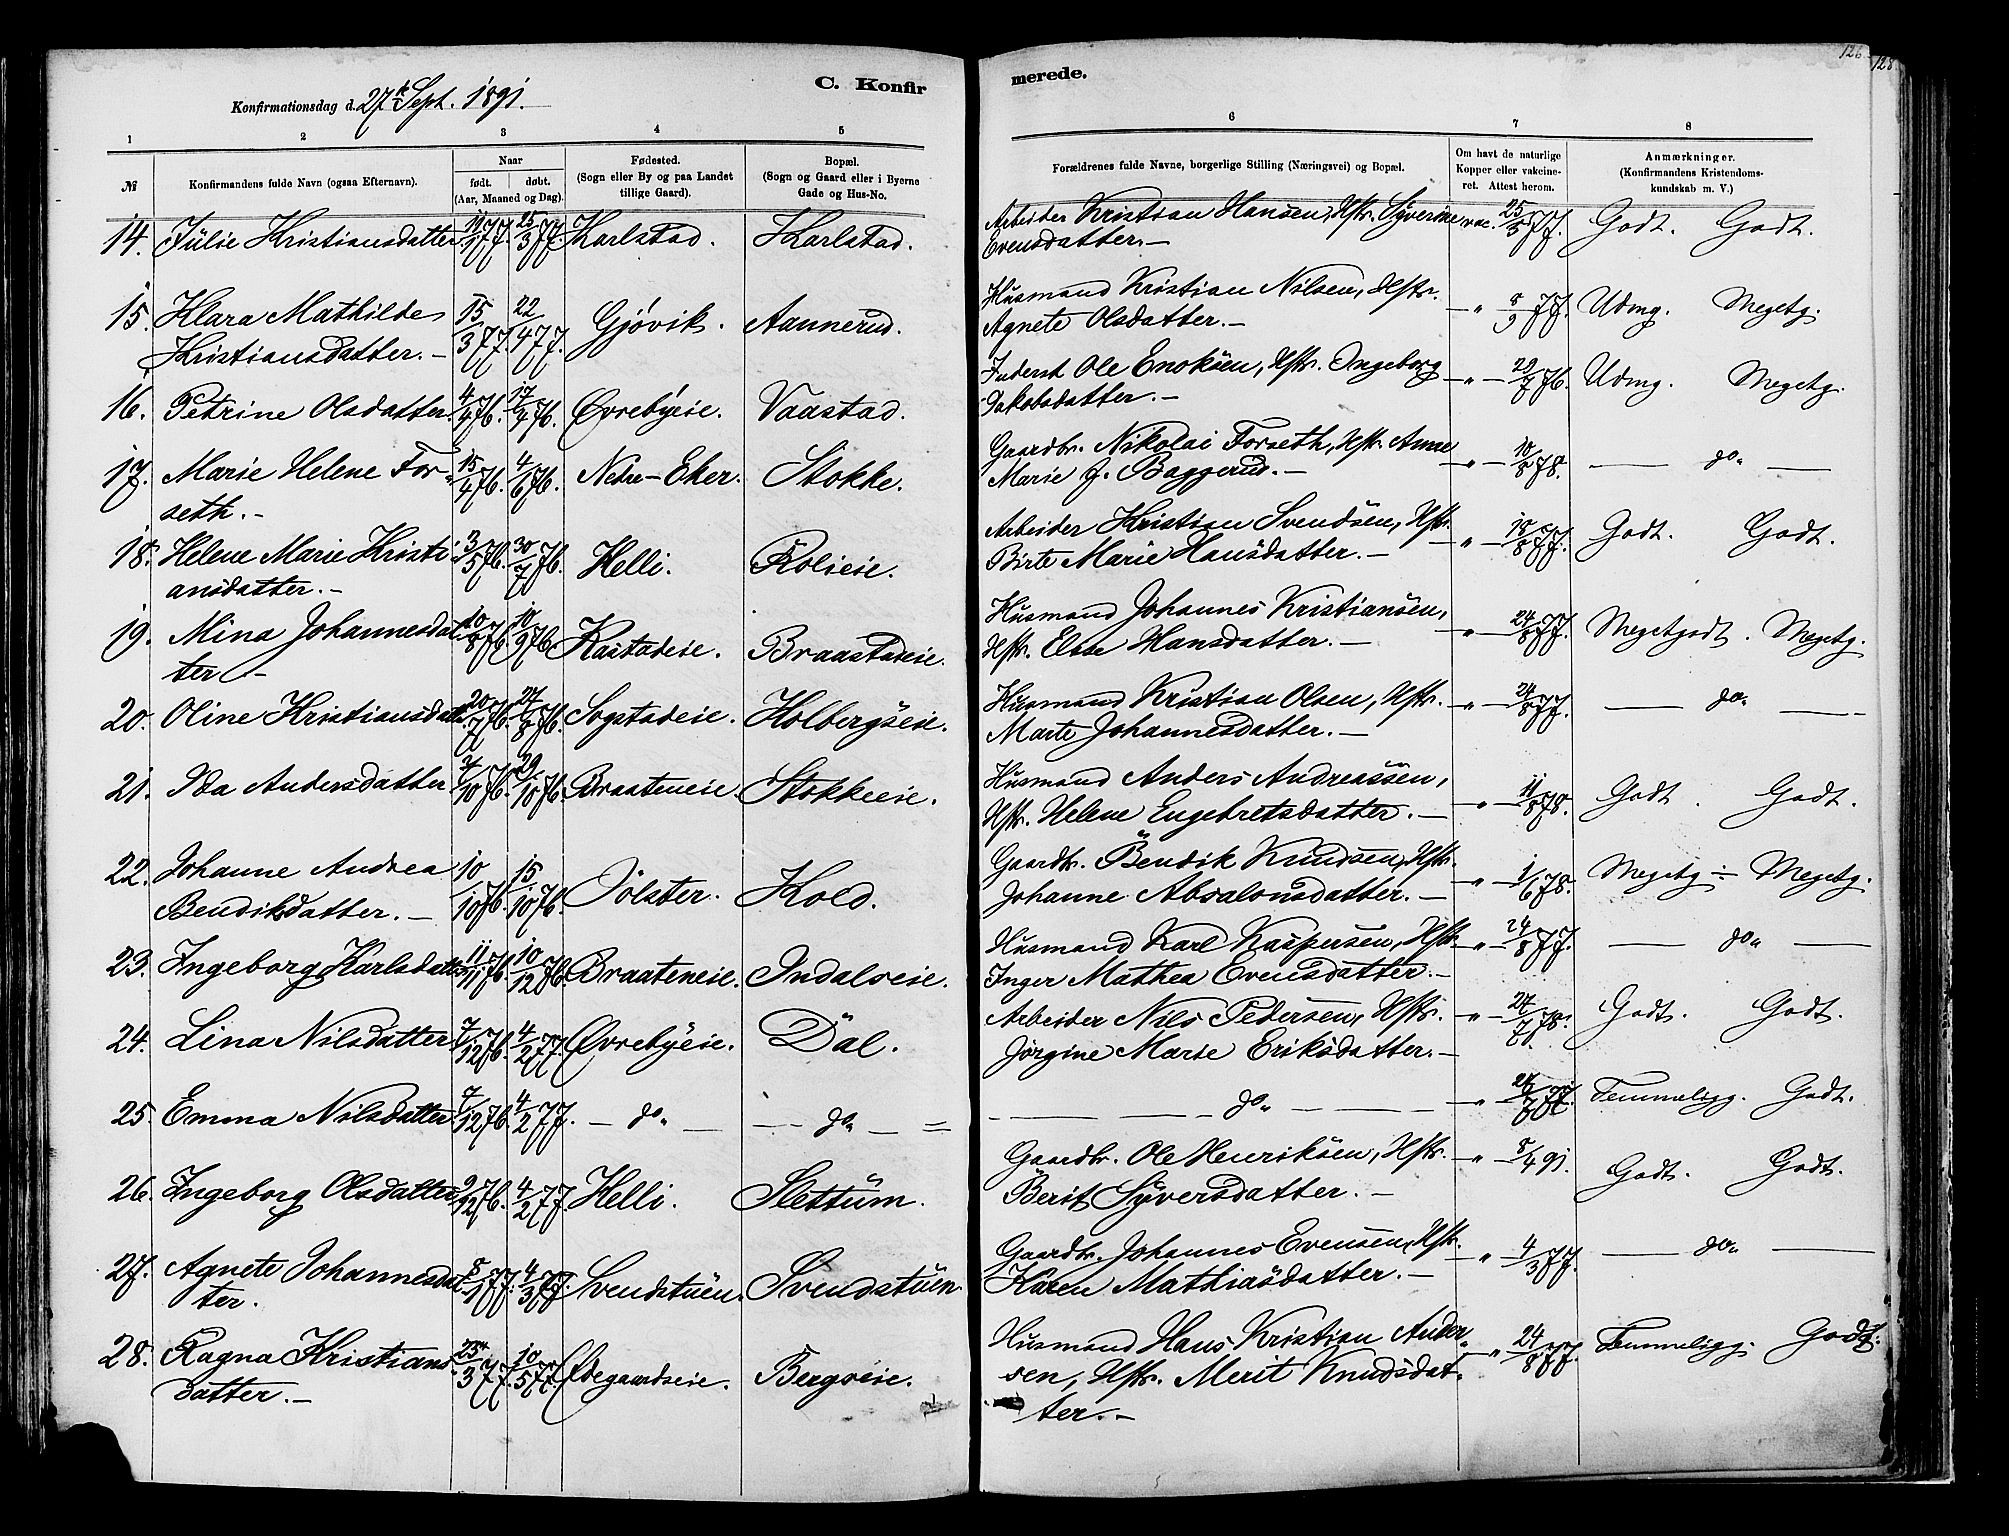 126
128
C. Konfir
merede.
Konfirmationsdag d. 27de Sept. 1891.
1 2 3 4 5 6 7 8
№
Konfirmandens fulde Navn (ogsaa Efternavn).
Naar
født. døbt.
(Aar, Maaned og Dag).
Fødested.
(Sogn eller By og paa Landet
tillige Gaard).
Bopæl.
(Sogn og Gaard eller i Byerne
Gade og Hus-No.
Forældrenes fulde Navne, borgerlige Stilling (Næringsvei) og Bopæl.
Om havt de naturlige
Kopper eller vakcine-
ret. Attest herom.
Anmærkninger.
(Konfirmandens Kristendoms-
kundskab m. V.)
14. Julie Kristiansdatter 11/1 77. 25/3 77. Karlstad. Karlstad. Arbeider Kristian Hansen, Hstr. Syverine vac. 25/5 77. Godt. Godt.
Evensdatter.—
15. Klara Mathilde 15/3 77. 22/4 77. Gjøvik. Aannerud. Husmand Kristian Nilsen, Hstr. — " 8/9 77. Udmg. Megetg.
Kristiansdatter.— Agnete Olsdatter.—
16. Petrine Olsdatter. 4/4 76. 17/4 76. Øvrebyeie. Vaastad. Inderst Ole Enoksen, Hstr. Ingeborg —"— 29/7 76. Udmg. Megetg.
Jakobsdatter.—
17. Marie Helene For- 15/4 76. 4/6 76. Nedre-Eker. Stokke. Gaardbr. Nikolai Forseth, Hstr. Anne —"— 10/8 78. — do" —
seth.— Marie J. Baggerud.—
18. Helene Marie Kristi- 3/5 76. 30/7 76. Helli. Rolieie. Arbeider Kristian Svendsen, Hstr. —"— 18/8 77. Godt. Godt.
ansdatter.— Birte Marie Hansdatter.—
19. Mina Johannesdat- 10/8 76. 10/9 76. Kastadeie. Braastadeie. Husmand Johannes Kristiansen, —"— 24/8 77. Megetgodt. Megetg.
ter— Hstr. Else Hansdatter.—
20. Oline Kristiansdatter 20/7 76. 27/8 76. Sogstadeie. Holbergseie. Husmand Kristian Olsen, Hstr. —"— 24/8 77. — do" —
Marte Johannesdatter.—
21. Ida Andersdatter 7/10 76. 29/10 76. Braateneie. Stokkeeie. Husmand Anders Andreassen, —"— 11/8 78. Godt. Godt.
Hstr. Helene Engebretsdatter.—
22. Johanne Andrea 10/10 76. 15/10 76. Jølster. Kold. Gaardbr. Bendik Knudsen, Hstr. —"— 1/6 78. Megetg— Megetg.
Bendiksdatter.— Johanne Absalonsdatter.—
23. Ingeborg Karlsdatter 11/11 76. 10/12 76. Braateneie. Indalseie. Husmand Karl Kaspersen, Hstr. —"— 24/8 77. — do" —
Inger Mathea Evensdatter.—
24. Lina Nilsdatter 7/12 76. 4/2 77. Øvrebyeie. Dal. Arbeider Nils Pedersen, Hstr. —"— 24/7 78. Godt. Godt.
Jørgine Marie Eriksdatter.—
25. Emma Nilsdatter 7/12 76. 4/2 77. — do" — — do" — — do" — —"— Temmeligg. Godt.
26. Ingeborg Olsdatter 9/12 76. 4/2 77. Helli. Slettum. Gaardbr. Ole Henriksen, Hstr. —"— 8/4 91. Godt. Godt.
Berit Syversdatter.—
27. Agnete Johannesdat- 8/1 77. 4/3 77. Svendstuen. Svendstuen Gaardbr. Johannes Evensen, Hstr. " 4/3 77. — do" —
ter. Karen Mathiasdatter.—
28. Ragna Kristians- 25/3 77. 10/5 77. Ødegaardseie. Bergseie. Husmand Hans Kristian Ander- —"— 24/8 77. Temmeligg. Godt.
datter.— sen, Hstr. Merit Knudsdat-
ter.—